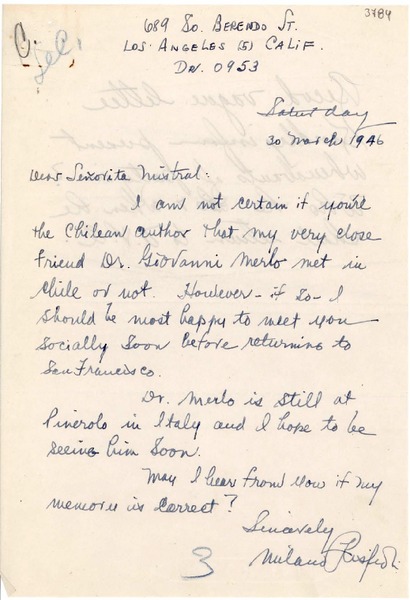 3784
C.
689 So. Berendo St.
Los Angeles (5) Calif.
Dr. 0953
Saturday
30 March 1946
Dear Señorita Mistral:
I am not certain if you're
the Chilean author that my very close
friend Dr. Giovanni Merlo met in
Chile or not. However - if so - I
should be most happy to meet you
socially soon before returning to
San Francisco.
Dr. Merlo is still at
Pinerolo in Italy and I hope to be
seeing him soon.
May I hear from you if my
memory is correct?
Sincerely
Milano
3